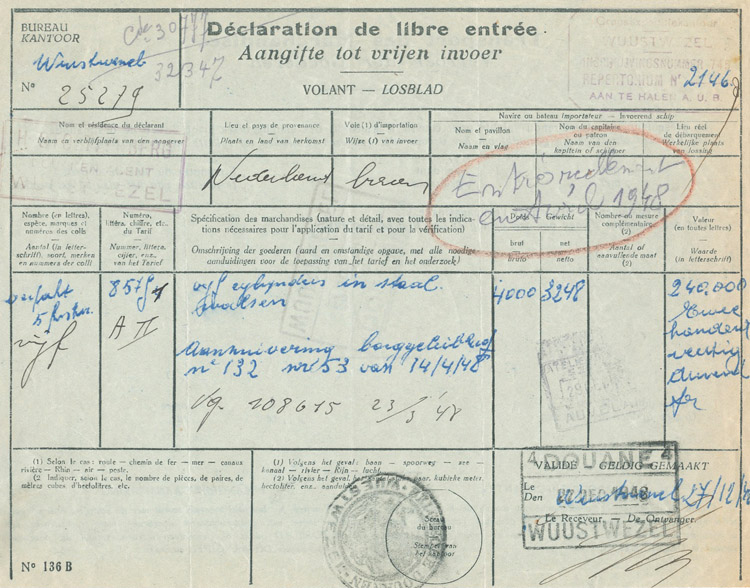 BUREAU
KANTOOR
Wuustwezel
Nº 25279
32347
Déclaration de libre entrée.
Aangifte tot vrijen invoer
VOLANT — LOSBLAD
WUUSTWEZEL
REPERTORIUM Nº 2146
AAN TE HALEN A. U. B.
Nom et résidence du déclarant
Naam en verblijfplaats van den aangever
Lieu et pays de provenance
Plaats en land van herkomst
Voie (1) d'importation
Wijze (1) van invoer
Navire ou bateau importateur — Invoerend schip
Nom et pavillon
Naam en vlag
Nom du capitaine ou patron
Naam van den kapitein of schipper
Lieu réel de débarquement
Werkelijke plaats van lossing
WUUSTWEZEL
Nederland
baan
Entré réellement
en Avril 1948
Nombre (en lettres), espèce, marques et numéros des colli
Aantal (in letterschrift), soort, merken en nummers der colli
Numéro, littéra, chiffre, etc. du Tarif
Nummer, littera, cijfer, enz. van het Tarief
Spécification des marchandises (nature et détail, avec toutes les indications nécessaires pour l'application du tarif et pour la vérification)
Omschrijving der goederen (aard en omstandige opgave, met alle noodige aanduidingen voor de toepassing van het tarief en het onderzoek)
Poids Gewicht
brut
bruto
net
netto
Nombre ou mesure complémentaire (2)
Aantal of aanvullende maat (2)
Valeur
(en toutes lettres)
Waarde
(in letterschrift)
verpakt
5 kisten
vijf
857
A II
vijf cylinders in staal
4000 3248
240,000
Twee
honderd
veertig
duizend
fr
Aanzuivering borggeleidbrief
nº 132 nr 53 van 14/4/48
Vg. 108615 23/3/'48
(1) Selon le cas: route — chemin de fer — mer — canaux rivière — Rhin — air — poste.
(2) Indiquer, selon le cas, le nombre de pièces, de paires, de mètres cubes d'hectolitres, etc.
(1) Volgens het geval: baan — spoorweg — zee — kanaal — rivier — Rijn — lucht
(2) Volgens het geval
kubieke meter
hectoliter, enz.
WUESTWEZEL
Sceau
du bureau
Stempel van
het kantoor
4 DOUANE 4
VALIDÉ GELDIG GEMAAKT
Le
Den
DEC 1948
Wuustwezel 27/12/48
Le Receveur De Ontvanger
WUUSTWEZEL
Nº 136 B